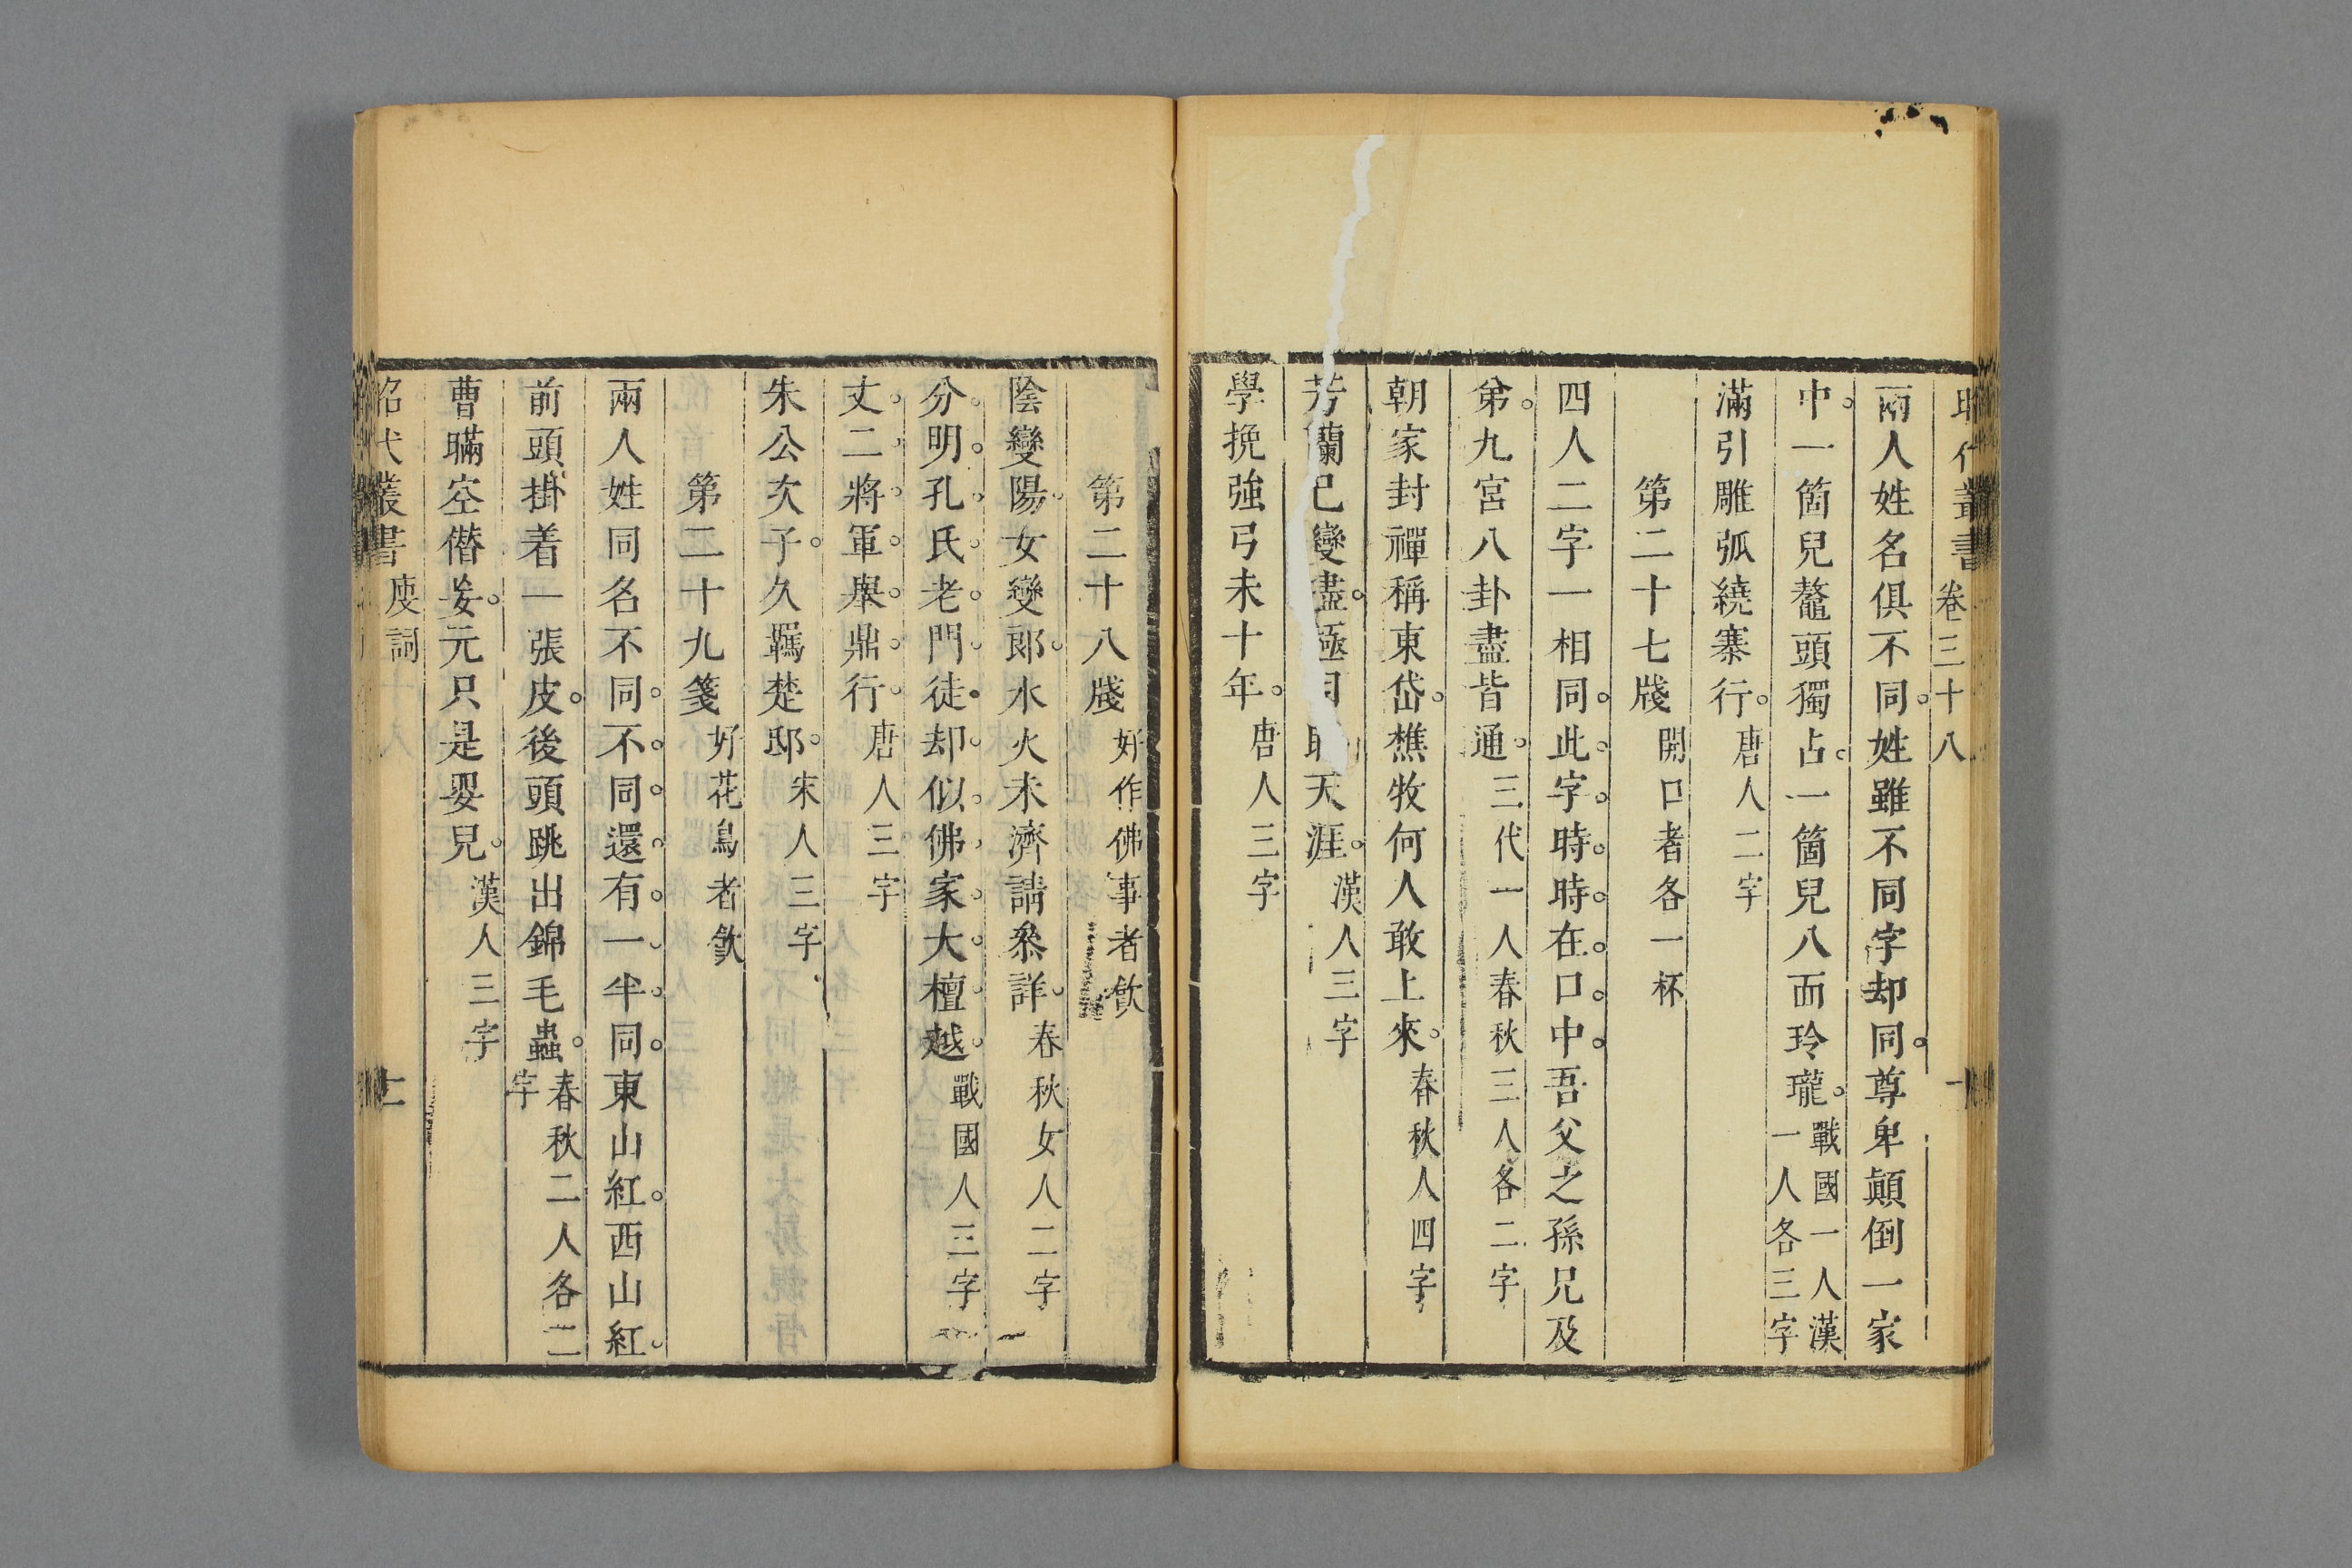 昭代叢書 卷三十八
兩人姓名俱不同。姓雖不同字却同。尊卑顛倒一家
中。一箇兒鼇頭獨占。一箇兒八面玲瓏。戰國一人漢一人各三字
滿引雕弧繞寨行。唐人二字
第二十七牋 開口者各一杯
四人二字一相同。此。字。時。時。在。口。中。吾父之孫兄及
弟。九宮八卦盡皆通。三代一人春秋三人各二字
朝家封禪稱東岱。樵牧何人敢上來。春秋人四字
芳蘭已變盡。極目天涯。漢人三字
學挽強弓未十年。唐人三字
第二十八牋 好作佛事者飲
陰變陽。女變郎。水火未濟請叅詳。春秋女人二字
分。明。孔。氏。老。門。徒。却。似。佛。家。大。檀。越。戰國人三字
丈。二。將。軍。舉。鼎。行。唐人三字
朱公次子。久羈楚邸。宋人三字
第二十九箋 好花鳥者飲
兩人姓同名不同。不。同。還。有。一。半。同。東山紅。西山紅。
前頭掛着一張皮。後頭跳出錦毛蟲。春秋二人各二字
曹瞞空僭妄。元只是嬰兒。漢人三字
昭代叢書 廋詞 十一